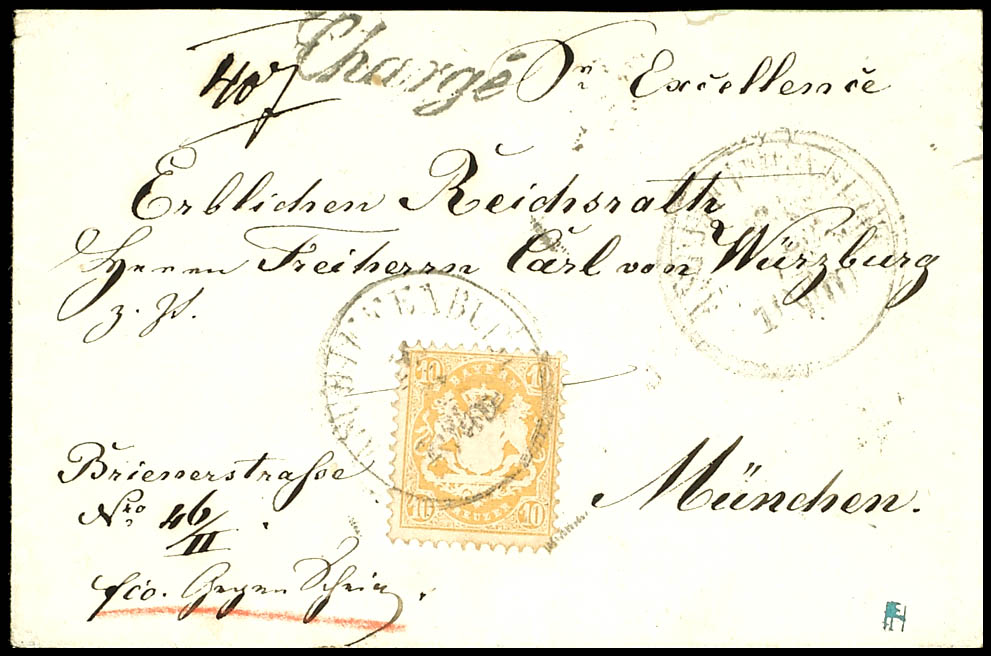 407 Chargé Sr Excellence
Erblichen Reichsrath
Herrn Freiherrn Carl von Würzburg
z. Z.
10 BAYERN 10
10 KREUZER 10
Brienerstraße
München.
Nro 46/II.
fco. Gegen Schein.